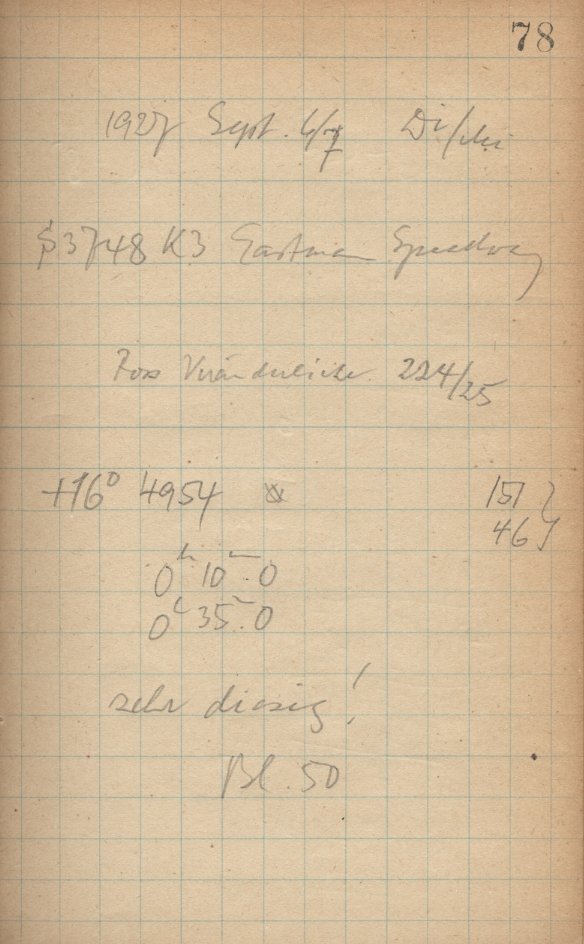 78
1927 Sept. 6/7 Di/Mi
S3748 K3 Eastman Speedway
Ross Veränderliche 224/25
+16° 4954 151 }
46 }
0ʰ 10ᵐ.0
0ʰ 35ᵐ.0
sehr diesig!
Bl. 50